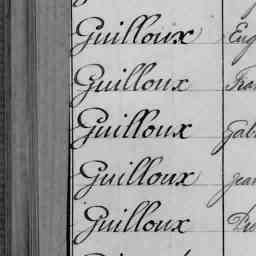 Guilloux Eug
Guilloux Fran
Guilloux Gab
Guilloux Jean
Guilloux